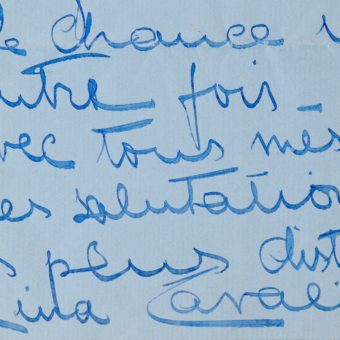 de chance
utre fois _
vec tous més
es salutation
s plus dist
Lina Cavali